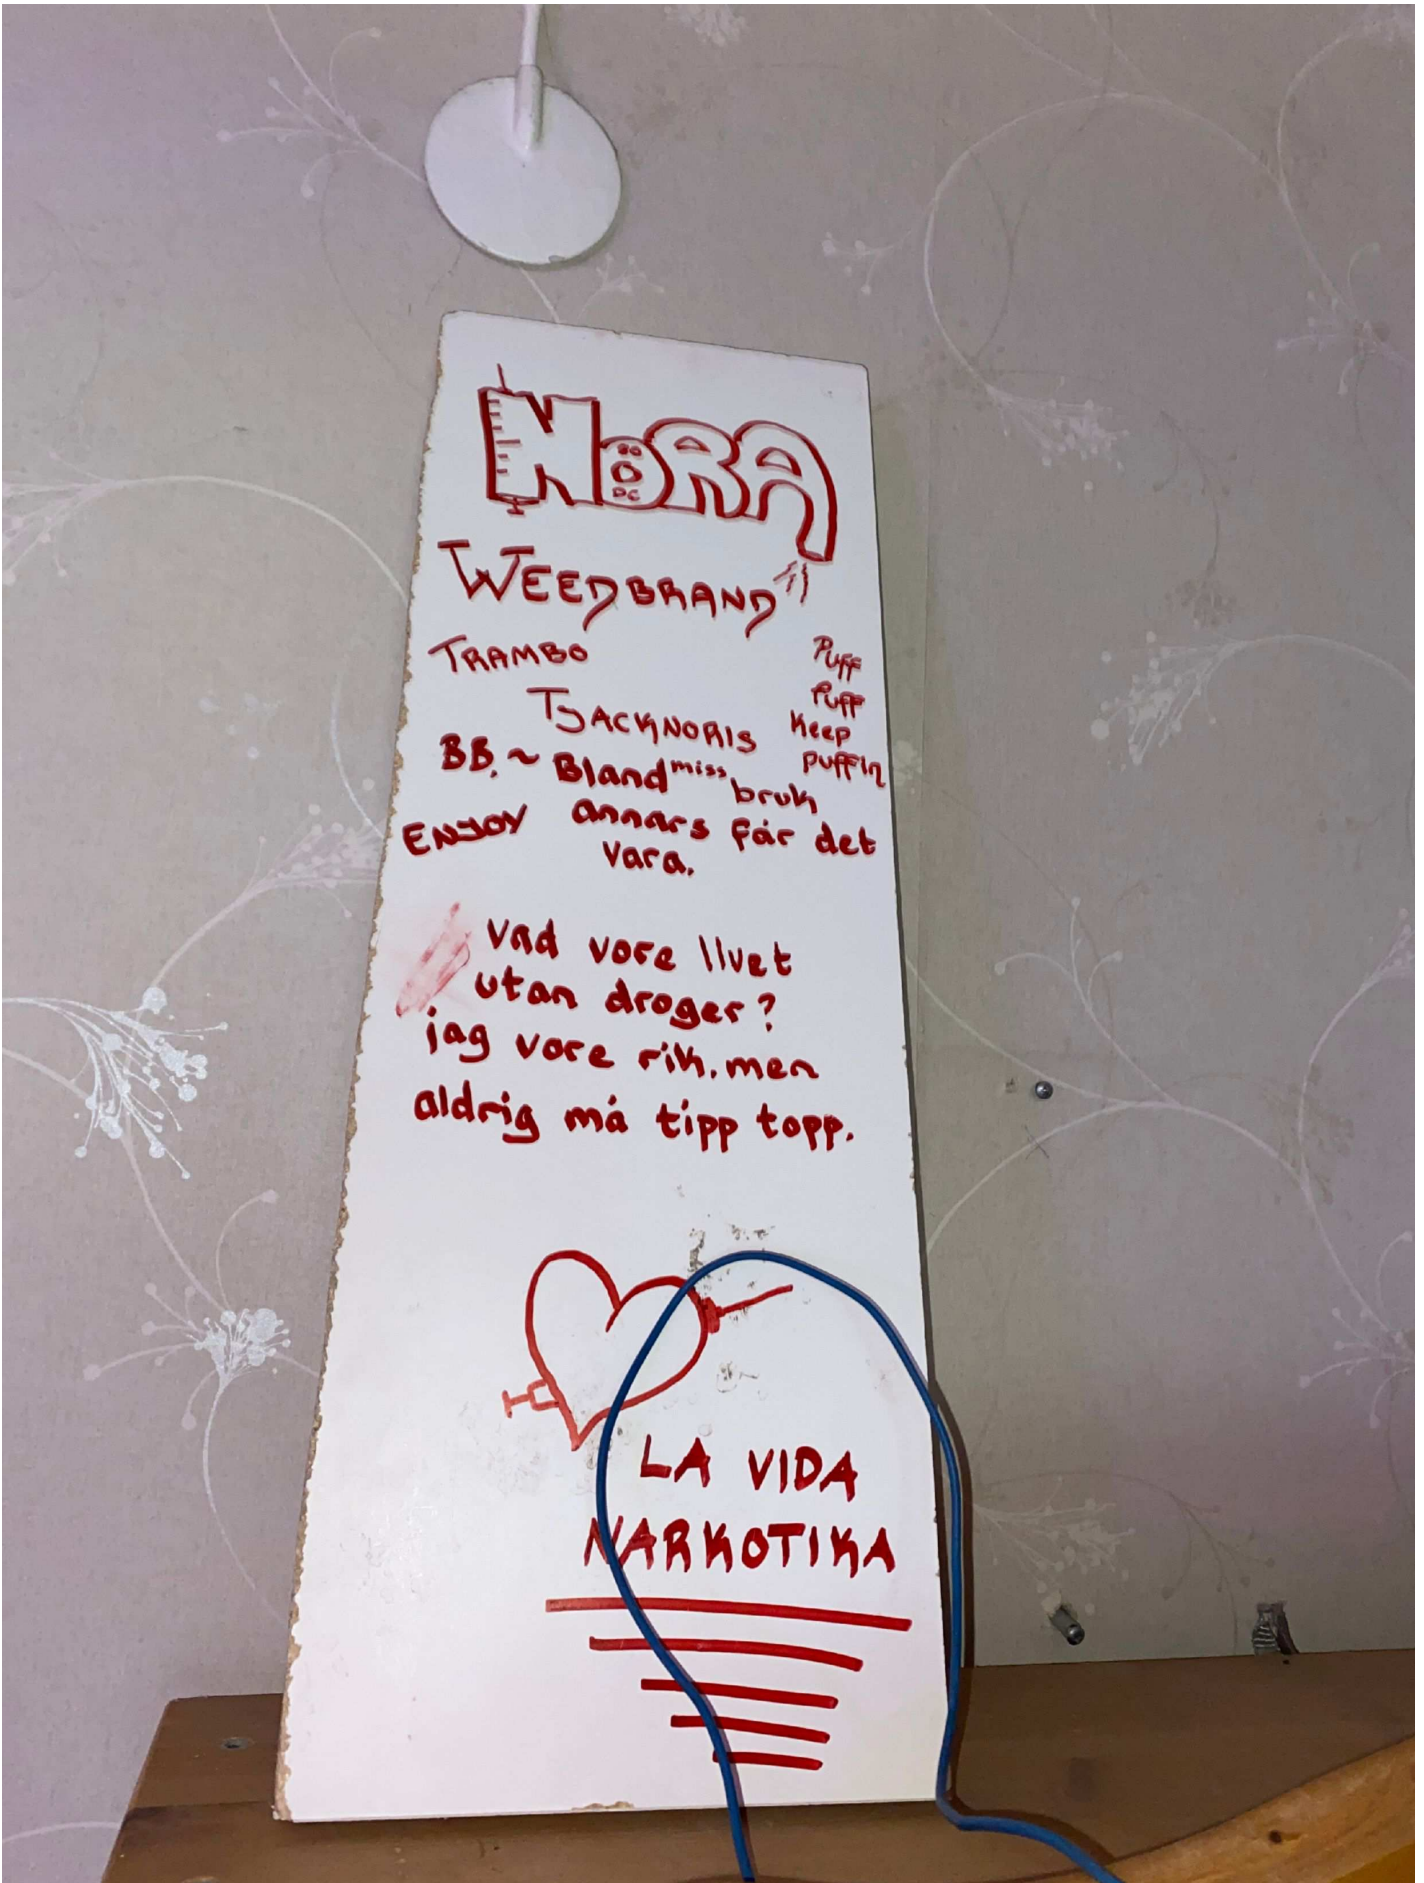 NÖRA
WEEDBRAND
TRAMBO
TJACKNORIS
Puff
Puff
Keep
puffin
BB. ~ Bland miss bruk
ENJOY annars får det
vara.
Vad vore livet
utan droger?
jag vore rik. men
aldrig må tipp topp.
LA VIDA
NARKOTIKA